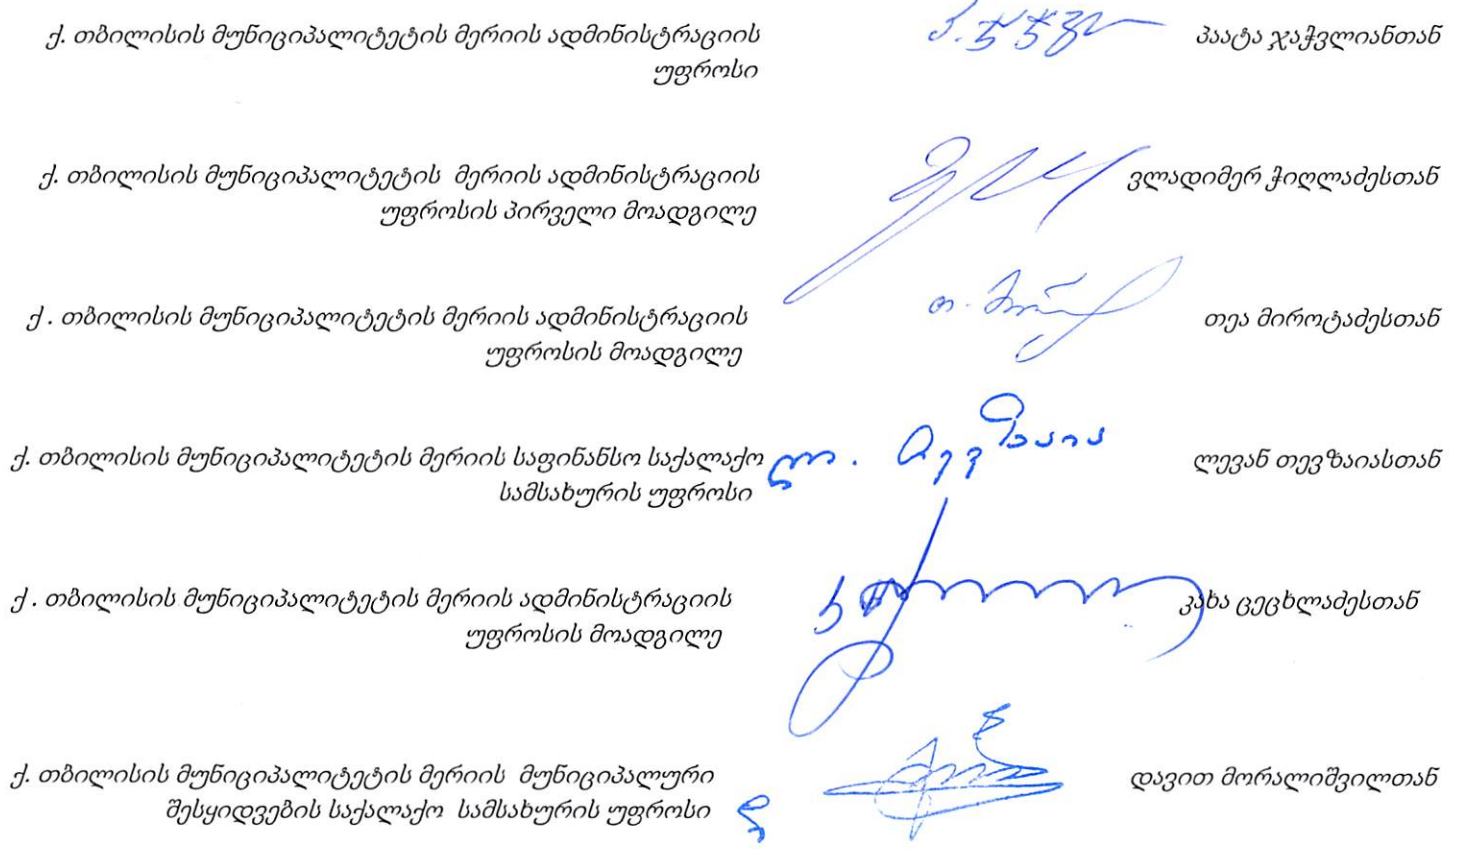 ქ. თბილისის მუნიციპალიტეტის მერიის ადმინისტრაციის
უფროსი
პაატა ჯაჭვლიანთან
ქ. თბილისის მუნიციპალიტეტის მერიის ადმინისტრაციის
უფროსის პირველი მოადგილე
ვლადიმერ ჭიღლაძესთან
ქ . თბილისის მუნიციპალიტეტის მერიის ადმინისტრაციის
უფროსის მოადგილე
თეა მიროტაძესთან
ქ. თბილისის მუნიციპალიტეტის მერიის საფინანსო საქალაქო
სამსახურის უფროსი
ლ. თევზაია
ლევან თევზაიასთან
ქ . თბილისის მუნიციპალიტეტის მერიის ადმინისტრაციის
უფროსის მოადგილე
კახა ცეცხლაძესთან
ქ. თბილისის მუნიციპალიტეტის მერიის მუნიციპალური
შესყიდვების საქალაქო სამსახურის უფროსი
დავით მორალიშვილთან